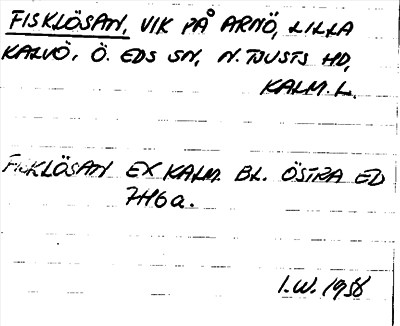 FISKLÖSAN, VIK PÅ ARNÖ, LILLA
KALVÖ, Ö. EDS SN, N. TJUSTS HD,
KALM. L.
FISKLÖSAN EX KALM. BL. ÖSTRA ED
7H6a.
I.W. 1958